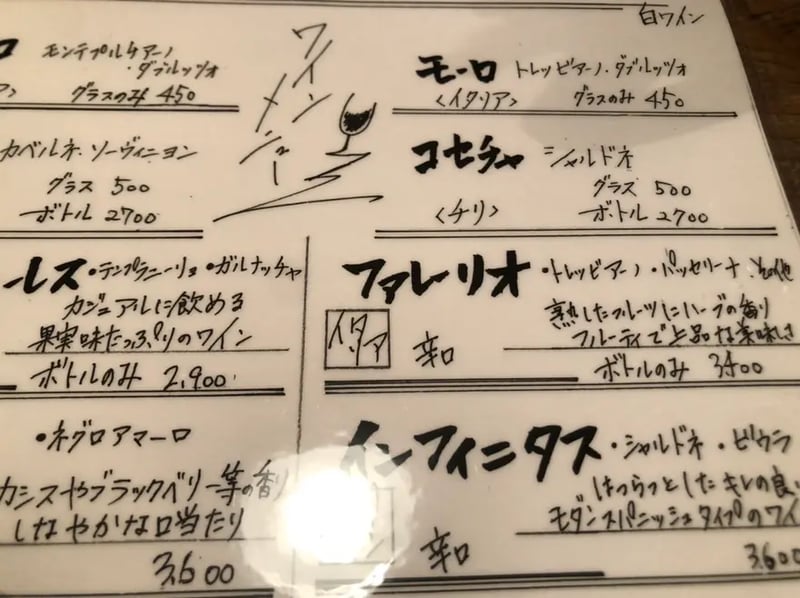 白ワイン
ワイン
メニュー
モンテプルチアーノ
・ダブルッツォ
グラスのみ 450
カベルネ・ソーヴィニヨン
グラス 500
ボトル 2700
ルス・テンプラニーリョ・ガルナッチャ
カジュアルに飲める
果実味たっぷりのワイン
ボトルのみ 2,900
・ネグロアマーロ
カシスやブラックベリー等の香り
しなやかな口当たり
3,600
モーロ トレッビアーノ・ダブルッツォ
〈イタリア〉 グラスのみ 450
コセチャ シャルドネ
グラス 500
〈チリ〉 ボトル 2700
ファレーリオ・トレッビアーノ・パッセリーナ その他
熟したフルーツにハーブの香り
イタリア 辛口 フルーティで上品な美味しさ
ボトルのみ 3400
インフィニタス・シャルドネ・ビウラ
はつらつとしたキレの良い
モダンスパニッシュタイプのワイ
辛口
3,600